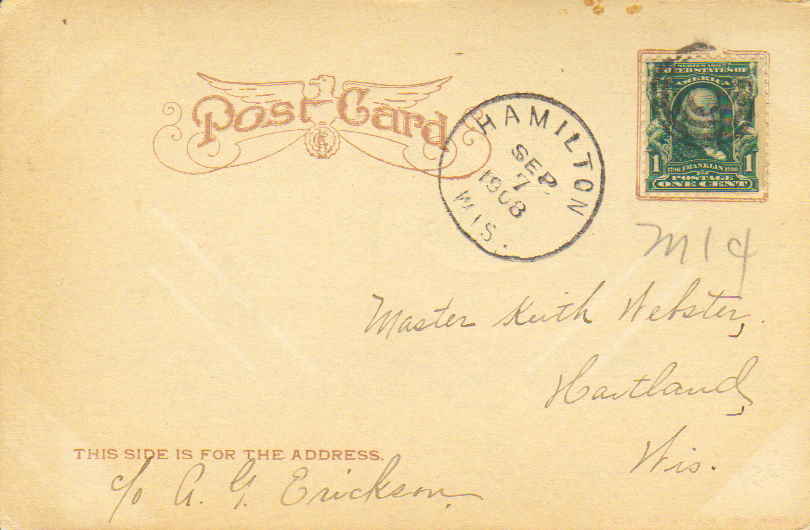 Post Card
HAMILTON
SEP
7
1908
WIS.
UNITED STATES OF
AMERICA
1 FRANKLIN 1
POSTAGE
ONE CENT
M14
Master Keith Webster,
Hartland,
Wis.
THIS SIDE IS FOR THE ADDRESS.
c/o A. G. Erickson